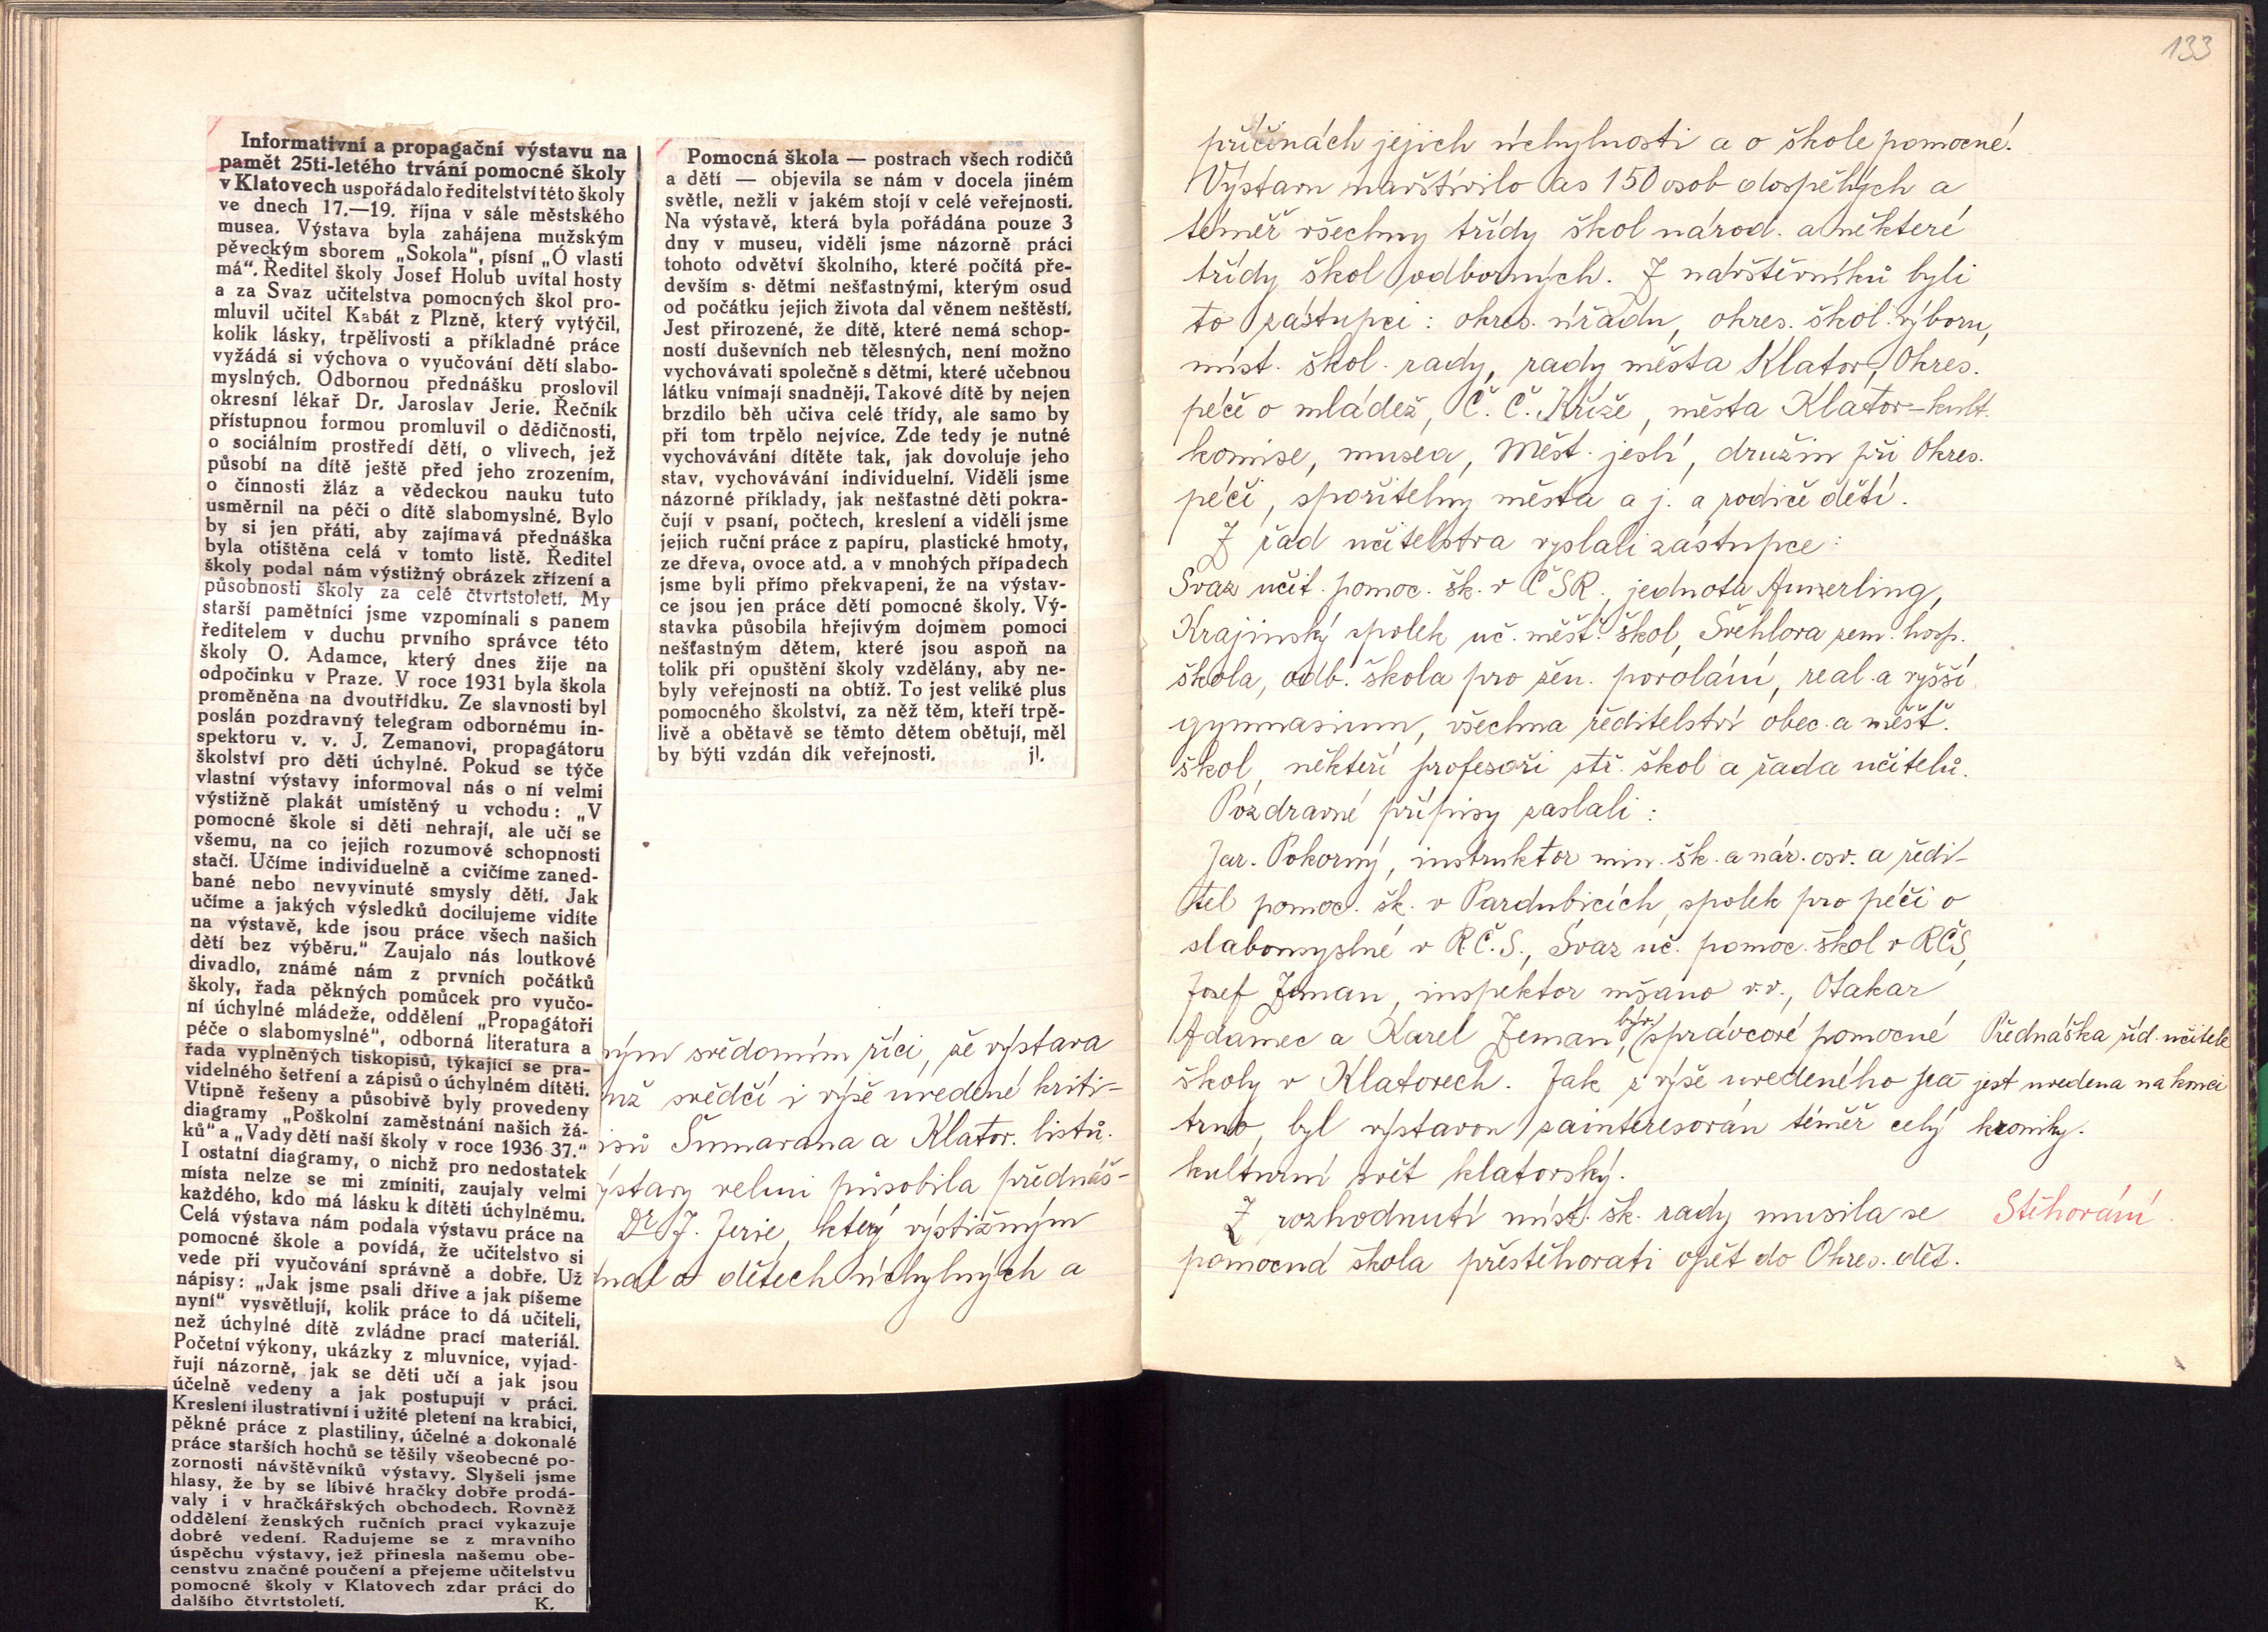 Informativní a propagační výstavu na
pamět 25ti-letého trvání pomocné školy
v Klatovech uspořádalo ředitelství této školy
ve dnech 17.—19. října v sále městského
musea. Výstava byla zahájena mužským
pěveckým sborem „Sokola“, písní „Ó vlasti
má“. Ředitel školy Josef Holub uvítal hosty
a za Svaz učitelstva pomocných škol pro-
mluvil učitel Kabát z Plzně, který vytýčil,
kolik lásky, trpělivosti a příkladné práce
vyžádá si výchova o vyučování dětí slabo-
myslných. Odbornou přednášku proslovil
okresní lékař Dr. Jaroslav Jerie. Řečník
přístupnou formou promluvil o dědičnosti,
o sociálním prostředí dětí, o vlivech, jež
působí na dítě ještě před jeho zrozením,
o činnosti žláz a vědeckou nauku tuto
usměrnil na péči o dítě slabomyslné. Bylo
by si jen přáti, aby zajímavá přednáška
byla otištěna celá v tomto listě. Ředitel
školy podal nám výstižný obrázek zřízení a
působnosti školy za celé čtvrtstoletí. My
starší pamětníci jsme vzpomínali s panem
ředitelem v duchu prvního správce této
školy O. Adamce, který dnes žije na
odpočinku v Praze. V roce 1931 byla škola
proměněna na dvoutřídku. Ze slavnosti byl
poslán pozdravný telegram odbornému in-
spektoru v. v. J. Zemanovi, propagátoru
školství pro děti úchylné. Pokud se týče
vlastní výstavy informoval nás o ní velmi
výstižně plakát umístěný u vchodu: „V
pomocné škole si děti nehrají, ale učí se
všemu, na co jejich rozumové schopnosti
stačí. Učíme individuelně a cvičíme zaned-
bané nebo nevyvinuté smysly dětí. Jak
učíme a jakých výsledků docilujeme vidíte
na výstavě, kde jsou práce všech našich
dětí bez výběru.“ Zaujalo nás loutkové
divadlo, známé nám z prvních počátků
školy, řada pěkných pomůcek pro vyučo-
ní úchylné mládeže, oddělení „Propagátoři
péče o slabomyslné“, odborná literatura a
řada vyplněných tiskopisů, týkající se pra-
videlného šetření a zápisů o úchylném dítěti.
Vtipně řešeny a působivě byly provedeny
diagramy „Poškolní zaměstnání našich žá-
ků“ a „Vady dětí naší školy v roce 1936-37.“
I ostatní diagramy, o nichž pro nedostatek
místa nelze se mi zmíniti, zaujaly velmi
každého, kdo má lásku k dítěti úchylnému.
Celá výstava nám podala výstavu práce na
pomocné škole a povídá, že učitelstvo si
vede při vyučování správně a dobře. Už
nápisy: „Jak jsme psali dříve a jak píšeme
nyní“ vysvětlují, kolik práce to dá učiteli,
než úchylné dítě zvládne prací materiál.
Početní výkony, ukázky z mluvnice, vyjad-
řují názorně, jak se děti učí a jak jsou
účelně vedeny a jak postupují v práci.
Kreslení ilustrativní i užité pletení na krabici,
pěkné práce z plastiliny, účelné a dokonalé
práce starších hochů se těšily všeobecné po-
zornosti návštěvníků výstavy. Slyšeli jsme
hlasy, že by se líbivé hračky dobře prodá-
valy i v hračkářských obchodech. Rovněž
oddělení ženských ručních prací vykazuje
dobré vedení. Radujeme se z mravního
úspěchu výstavy, jež přinesla našemu obe-
censtvu značné poučení a přejeme učitelstvu
pomocné školy v Klatovech zdar práci do
dalšího čtvrtstoletí. K.
Pomocná škola — postrach všech rodičů
a dětí — objevila se nám v docela jiném
světle, nežli v jakém stojí v celé veřejnosti.
Na výstavě, která byla pořádána pouze 3
dny v museu, viděli jsme názorně práci
tohoto odvětví školního, které počítá pře-
devším s dětmi nešťastnými, kterým osud
od počátku jejich života dal věnem neštěstí.
Jest přirozené, že dítě, které nemá schop-
ností duševních neb tělesných, není možno
vychovávati společně s dětmi, které učebnou
látku vnímají snadněji. Takové dítě by nejen
brzdilo běh učiva celé třídy, ale samo by
při tom trpělo nejvíce. Zde tedy je nutné
vychovávání dítěte tak, jak dovoluje jeho
stav, vychovávání individuelní. Viděli jsme
názorné příklady, jak nešťastné děti pokra-
čují v psaní, počtech, kreslení a viděli jsme
jejich ruční práce z papíru, plastické hmoty,
ze dřeva, ovoce atd. a v mnohých případech
jsme byli přímo překvapeni, že na výstav-
ce jsou jen práce dětí pomocné školy. Vý-
stavka působila hřejivým dojmem pomoci
nešťastným dětem, které jsou aspoň na
tolik při opuštění školy vzdělány, aby ne-
byly veřejnosti na obtíž. To jest veliké plus
pomocného školství, za něž těm, kteří trpě-
livě a obětavě se těmto dětem obětují, měl
by býti vzdán dík veřejnosti. jl.
ným svědomím říci, že výstava
nž svědčí i výše uvedené kriti-
isů Šumavana a Klatov. listů.
ýstavy velmi působila přednáš-
Dr J. Jerie, který výstižným
nal o dětech úchylných a
133
příčinách jejich úchylnosti a o škole pomocné.
Výstavu navštívilo as 150 osob dospělých a
téměř všechny třídy škol národ. a některé
třídy škol odborných. Z návštěvníků byli
to zástupci: okres. úřadu, okres. škol. výboru,
míst. škol. rady, rady města Klatov, Okres.
péče o mládež, Č. Č. Kříže, města Klatov-kult.
komise, musea, Měst. jeslí, družin při Okres.
péči, spořitelny města a j. a rodiče dětí.
Z řad učitelstva vyslali zástupce:
Svaz učit. pomoc. šk. v ČSR., jednota Amerling,
Krajinský spolek uč. měšť. škol, Švehlova zem. hosp.
škola, odb. škola pro žen. povolání, real. a vyšší
gymnasium, všechna ředitelství obec. a měšť.
škol, někteří profesoři stř. škol a řada učitelů.
Pozdravné přípisy zaslali:
Jar. Pokorný, instruktor min. šk. a nár. osv. a ředi-
tel pomoc. šk. v Pardubicích, spolek pro péči o
slabomyslné v R.Č.S., Svaz uč. pomoc. škol v RČS,
Josef Zeman, inspektor mšano v.v., Otakar
Adamec a Karel Zeman, býv. správcové pomocné
školy v Klatovech. Jak z výše uvedeného pa-
trno, byl výstavou zainteresován téměř celý
kulturní svět klatovský.
Přednáška říd. učitele
jest uvedena na konci
kroniky.
Z rozhodnutí míst. šk. rady musila se
pomocná škola přestěhovati opět do Okres. dět.
Stěhování.